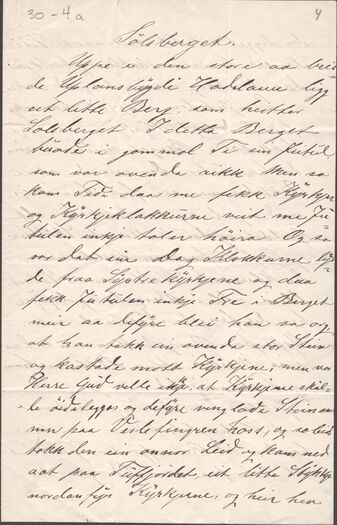 30-4a
4
Sølsberget.
Uppe i den store aa brei-
de Uplansbygdi Hadeland ligg
eit lite Berg, som heitter
Solsberget. I detta Berget
budde i gommol Ti ein Jutul
som var ovenda rikk. Men so
kom Tide daa me fekk Kyrkjer
og Kyrkjeklokkurne veit me Ju-
tulen inkje toler høira. Og so
var dat ein Dag Klokkurne lj
de fraa Systrekyrkjene og daa
fekk Jutulen inkje Fre i Berget
meir aa defyre blei han so og
at han tokk ein ovende stor Stein
og kastade mott Kyrkjene, men vor
Herre Gud vilde ikje, at Kyrkjene skul-
de øideleggas og defyre lade Steinen
paa Veslefingren hass, og so
tokk den ein annor Leid og kom ned
aat paa Tuffjordet, eit lite Stykkje
nordanfyr Kyrkjerne, og heir hev